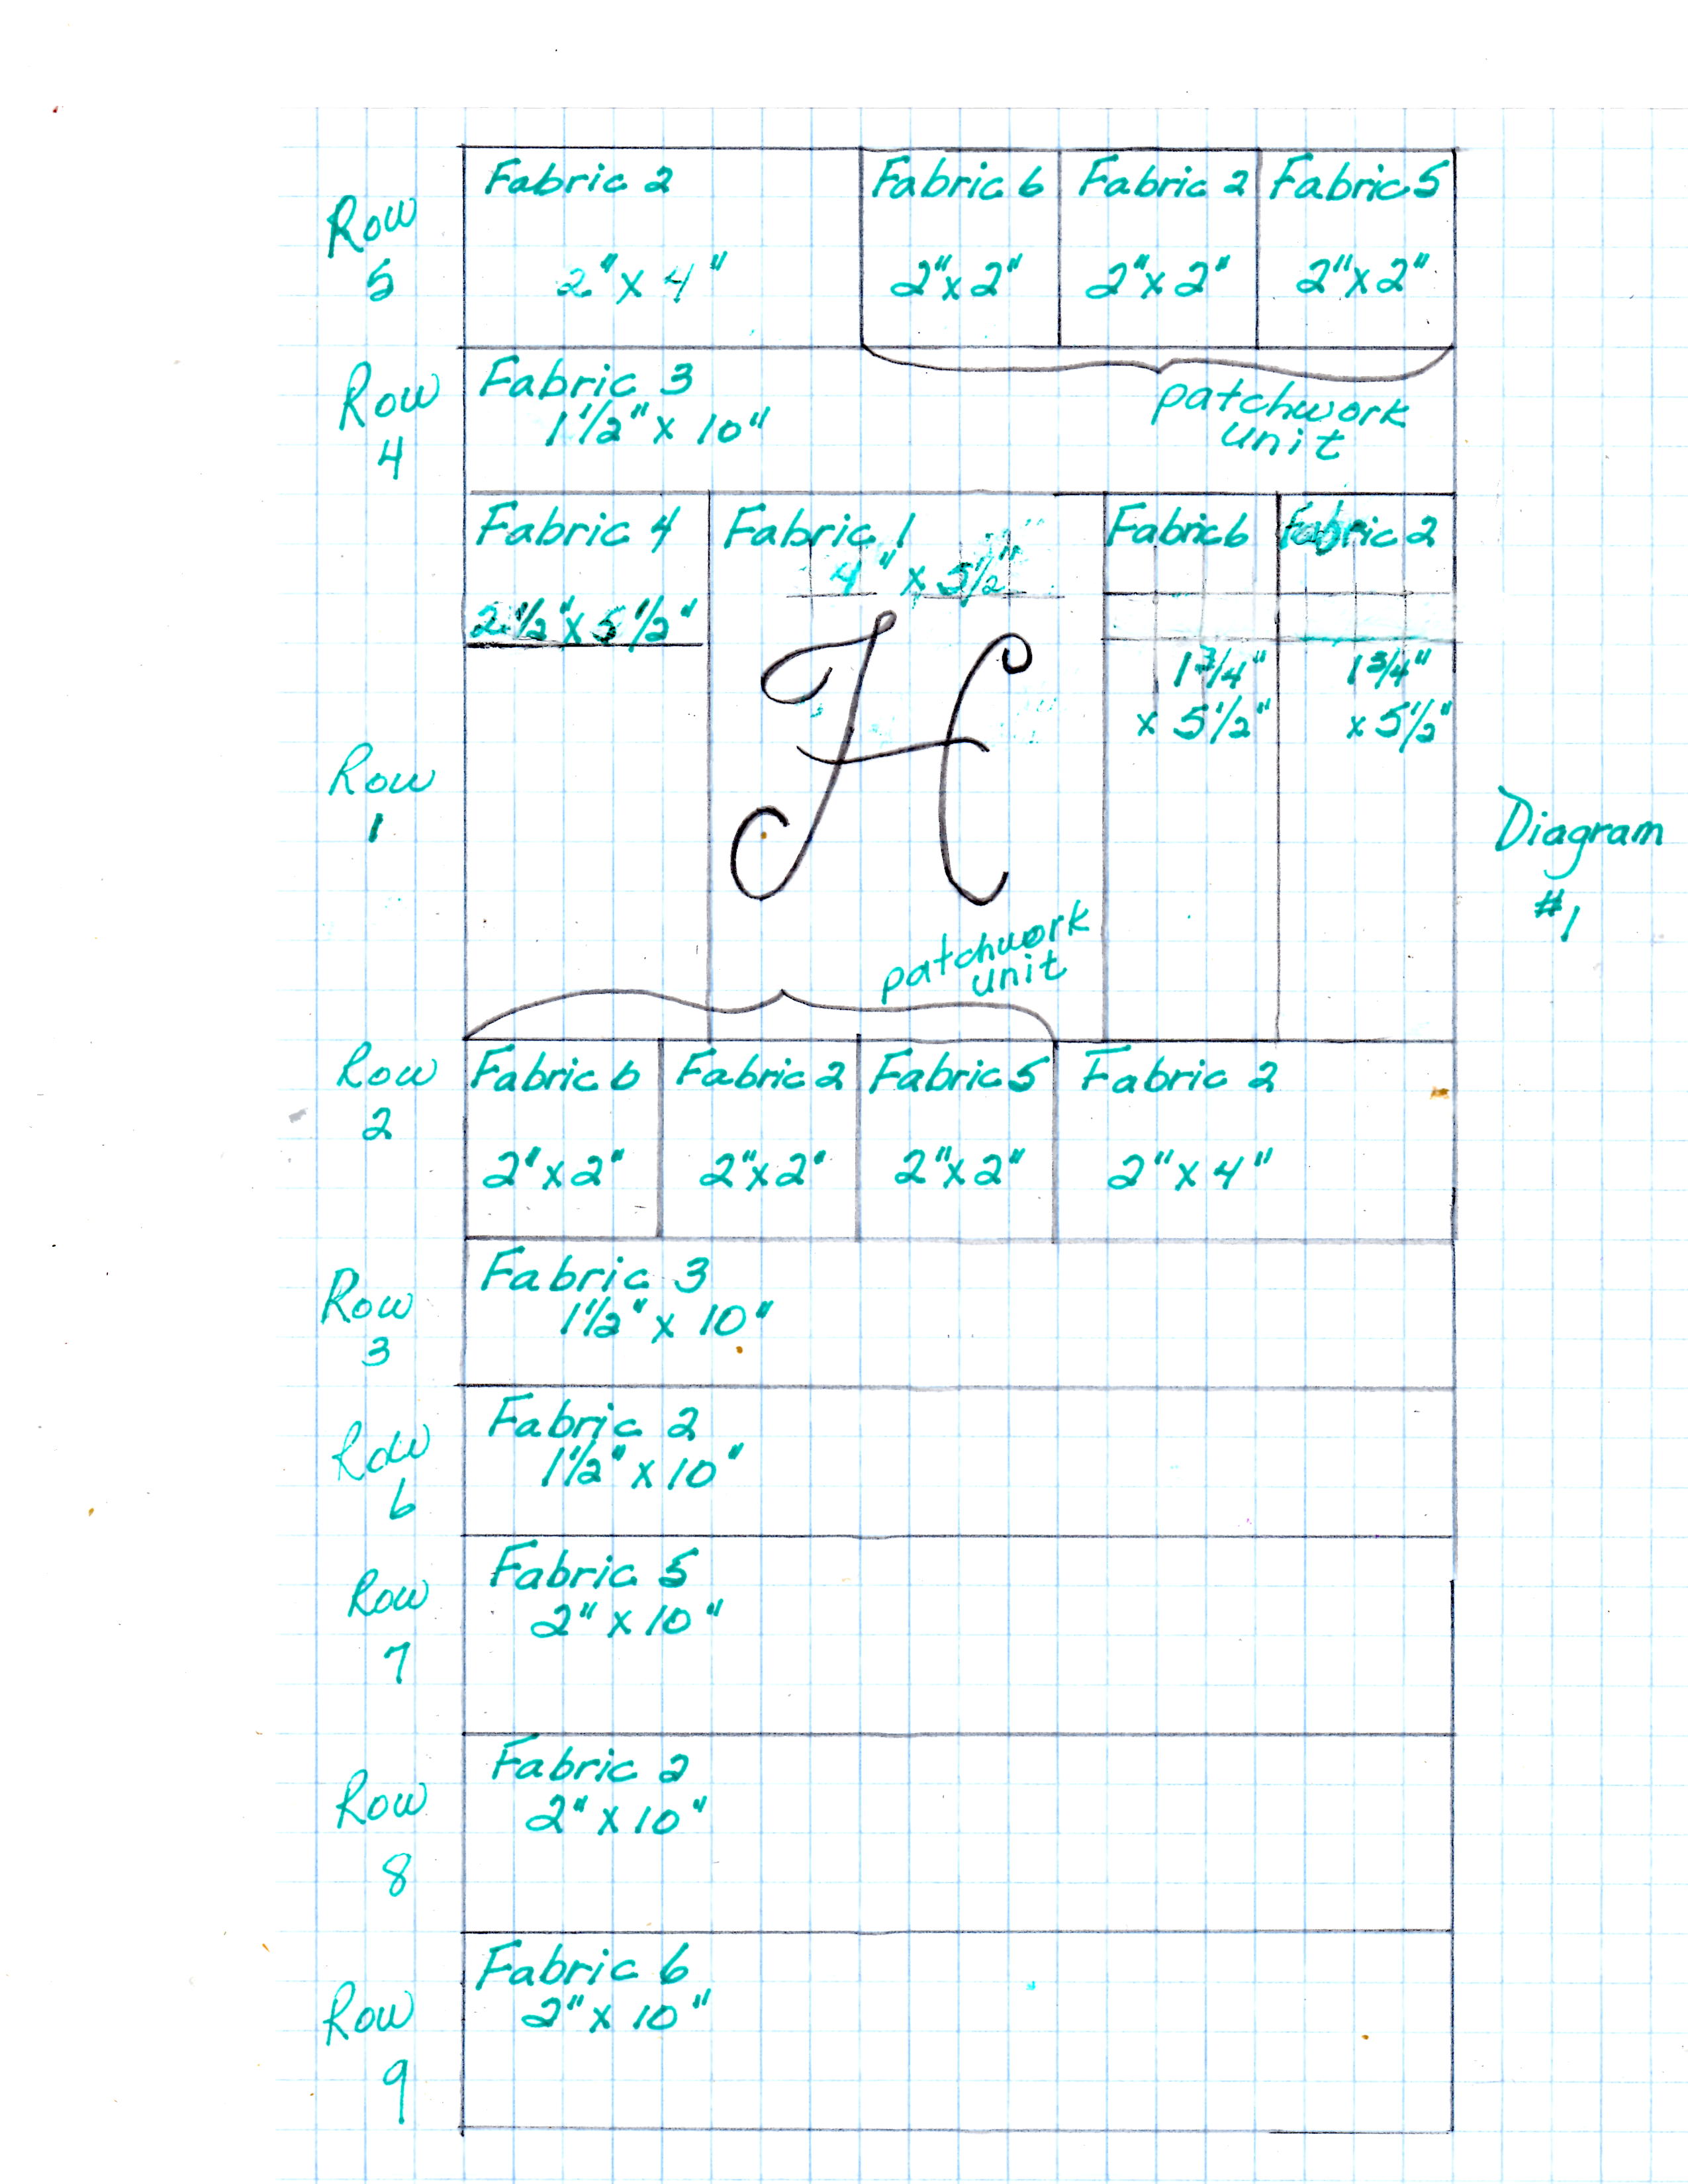 Row
5
Fabric 2
2" x 4"
Fabric 6
2" x 2"
Fabric 2
2" x 2"
Fabric 5
2" x 2"
patchwork
unit
Row
4
Fabric 3
1 1/2" x 10"
Row
1
Fabric 4
2 1/2" x 5 1/2"
Fabric 1
4" x 5 1/2"
H
Fabric 6
1 3/4"
x 5 1/2"
Fabric 2
1 3/4"
x 5 1/2"
Diagram
#1
patchwork
unit
Row
2
Fabric 6
2" x 2"
Fabric 2
2" x 2"
Fabric 5
2" x 2"
Fabric 2
2" x 4"
Row
3
Fabric 3
1 1/2" x 10"
Row
6
Fabric 2
1 1/2" x 10"
Row
7
Fabric 5
2" x 10"
Row
8
Fabric 2
2" x 10"
Row
9
Fabric 6
2" x 10"